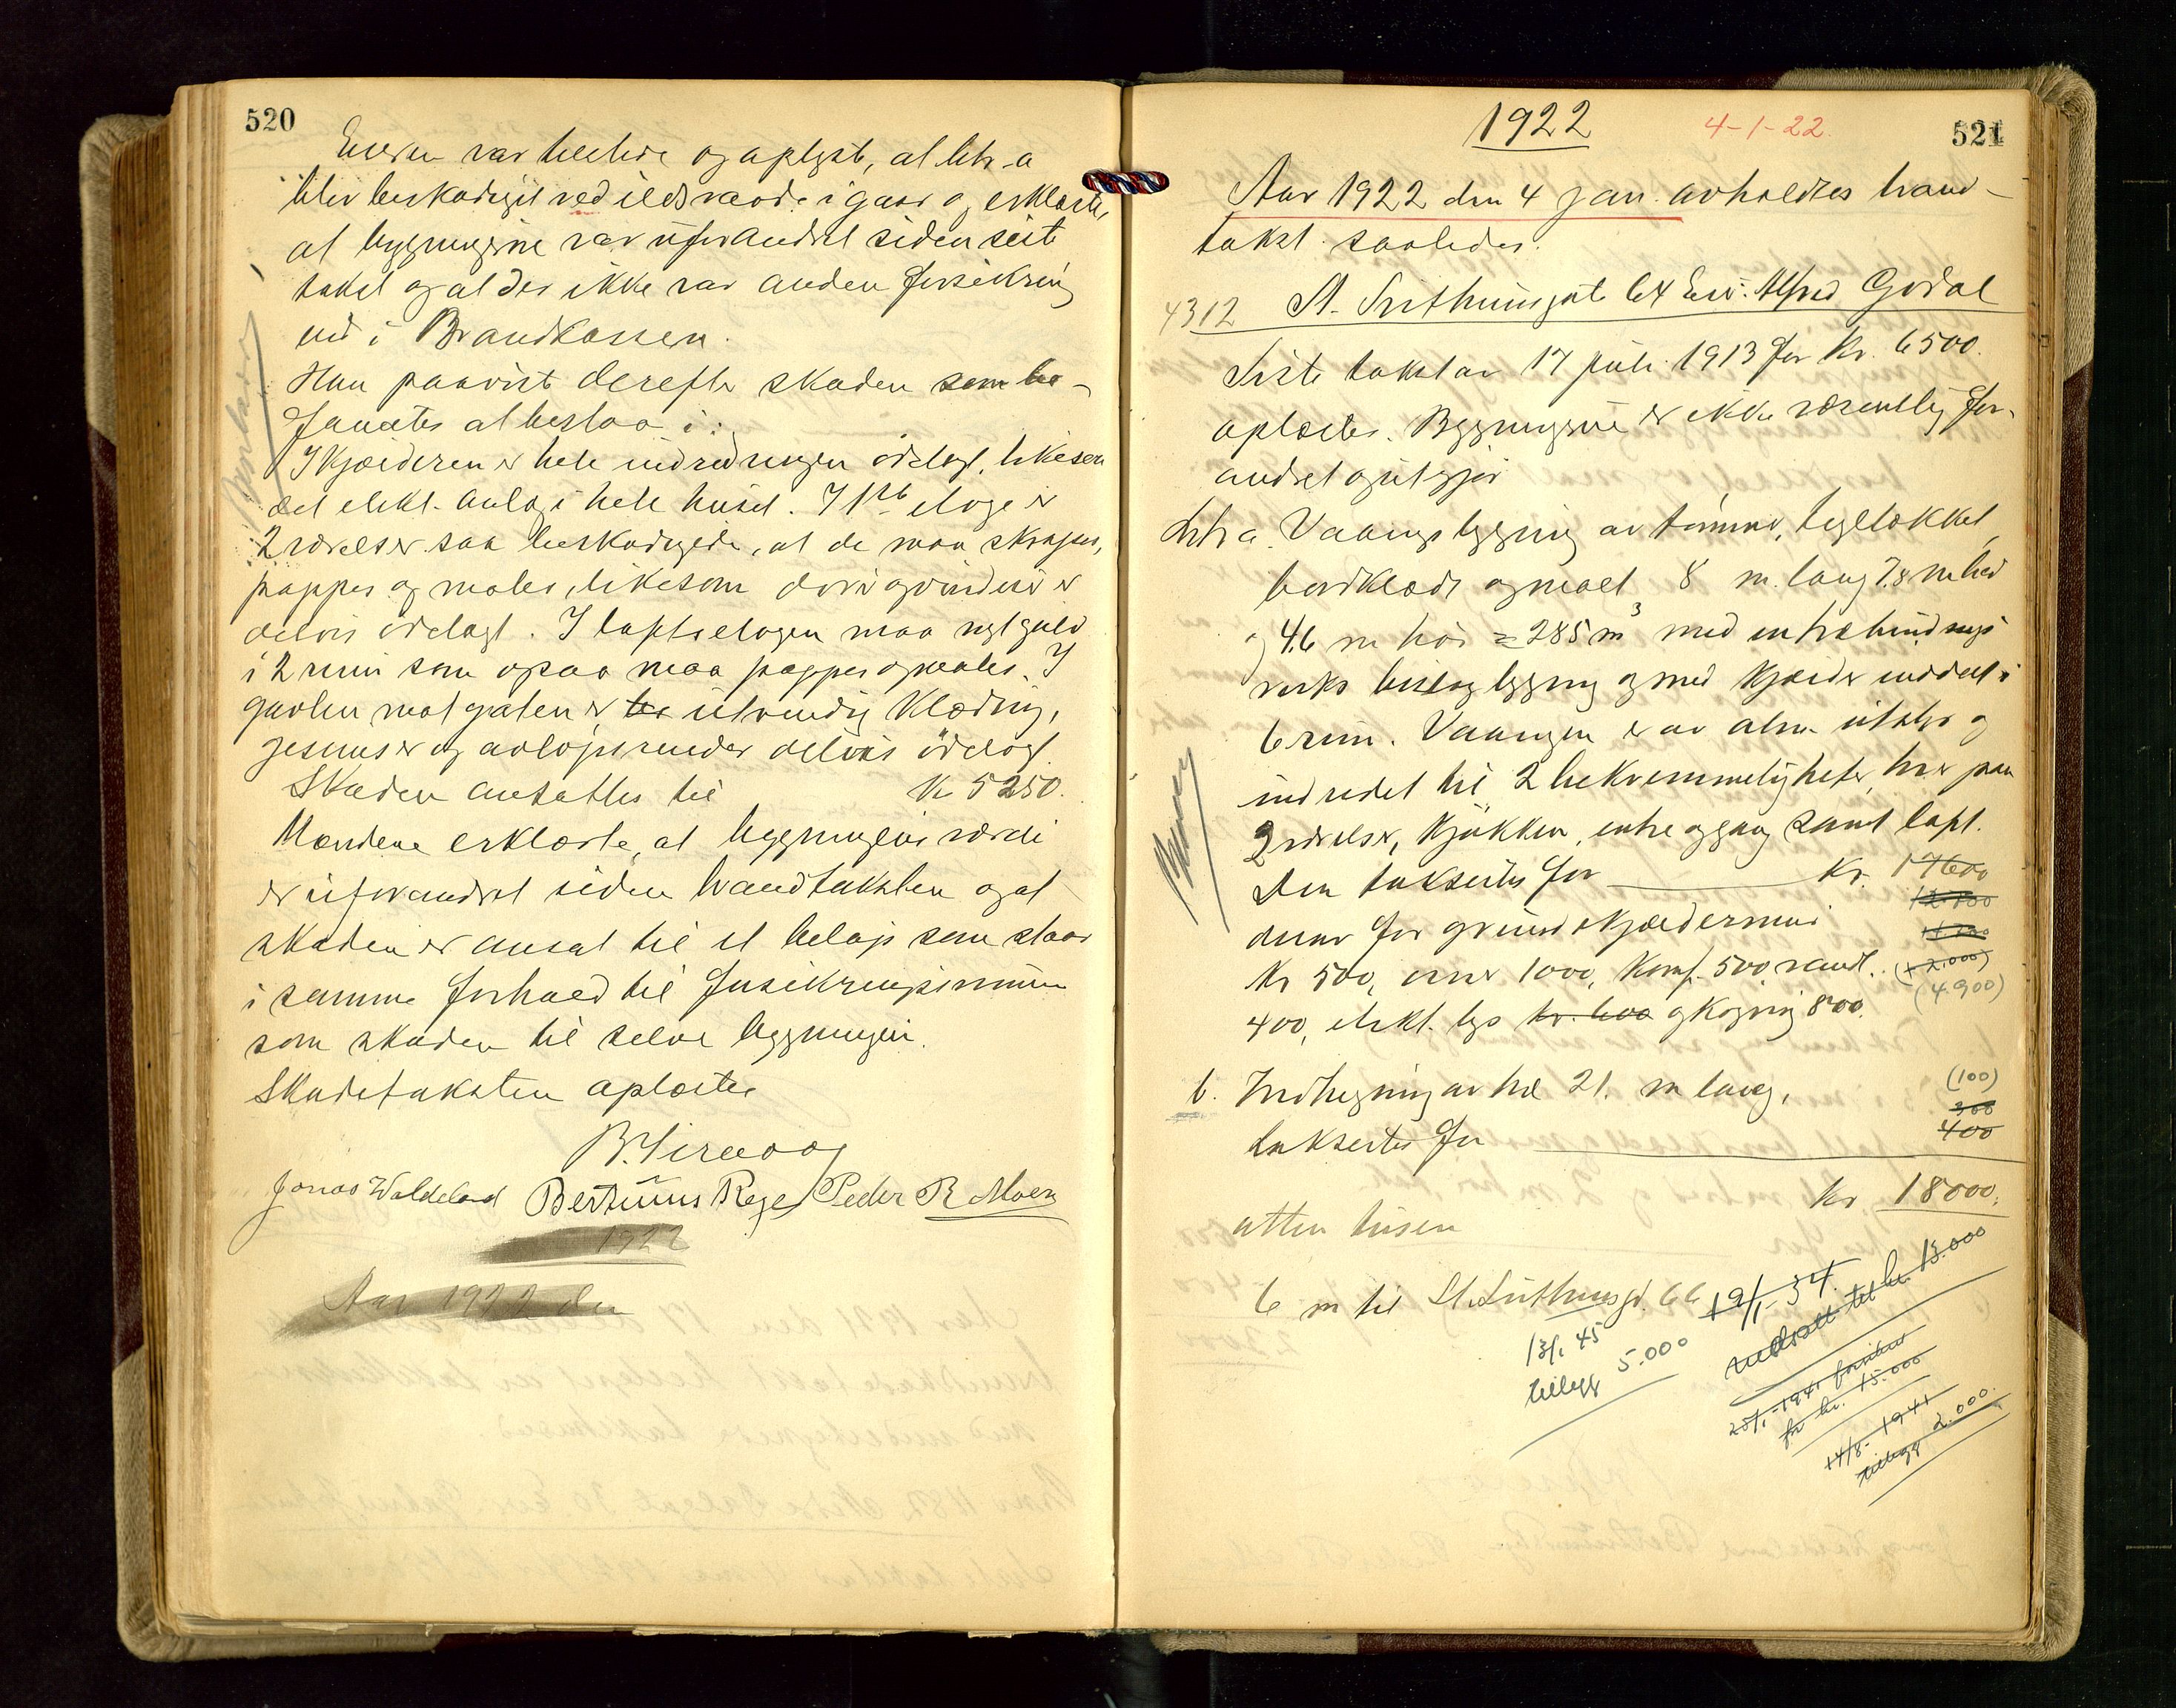 520
Eieren var tilstede og oplyst, at litr. a
blev beskadiget ved ildsvaade i gaar og erklærte,
at bygningerne var uforandret siden siste
takst og at der ikke var anden forsikring
end i Brandkassen.
Han paaviste derefter skaden som be-
fandtes at bestaa i:
I kjælderen er hele indredningen ödelagt, likesom
det elekt. anlæg i hele huset. I 1ste etage er
2 værelser saa beskadigede, at de maa skrapes,
pappes og males, likesom dører og vinduer er
delvis ödelagt. I loftsetagen maa nyt gulv
i 2 rum som ogsaa maa pappes og males. I
gavlen mot gaten er utvendig klædning,
gesimser og avløpsrender delvis ödelagt.
Skaden ansattes til Kr 5250.
Mændene erklærte, at bygningens værdi
er uforandret siden brandtaksten og at
skaden er ansat til et beløp som staar
i samme forhold til forsikringssummen
som skaden til selve bygningen.
Skadetaksten oplæstes
Jonas Waldeland Bertinius Rege Peder R. Moen
1922
Aar 1922 den
1922 4-1-22. 521
Aar 1922 den 4 jan. avholdtes brand-
takst saaledes:
4312 St. Svithunsgate 64 Eier: Alfred Godal
Siste takst av 17 juli 1913 for kr. 6500.
oplæstes. Bygningerne er ikke væsentlig for-
andret og utgjør
Litr a. Vaaningsbygning av tømmer, tegltækket,
bordklædt og malt 8 m. lang 7.8 m bred
og 4.6 m höi = 285 m³ med en træbindings
verks bislagbygning og med kjælder inddelt i
6 rum. Vaaningen er av alm. utstyr og
indredet til 2 bekvemmeligheter, hver paa
2 værelser, kjøkken, entre og gang samt loft.
Den takseres for Kr. 17600
12.900
derav for grund & kjældermur
kr 500, ovner 1000, komf. 500 vandl. (+2.000)
400, elekt. lys kr. 600 og kogning 800. (4.900)
b. Indhegning av træ 21. m lang, (100)
300
takseres for 400
kr 18000.
atten tusen
6 m til St. Svithunsgt. 66
19/1-34.
nedsatt til kr. 13.000
13/1 45
tillegg 5.000
25/1-1941 forsikret
for kr. 15.000
14/8-1941
tillegg 2.000.